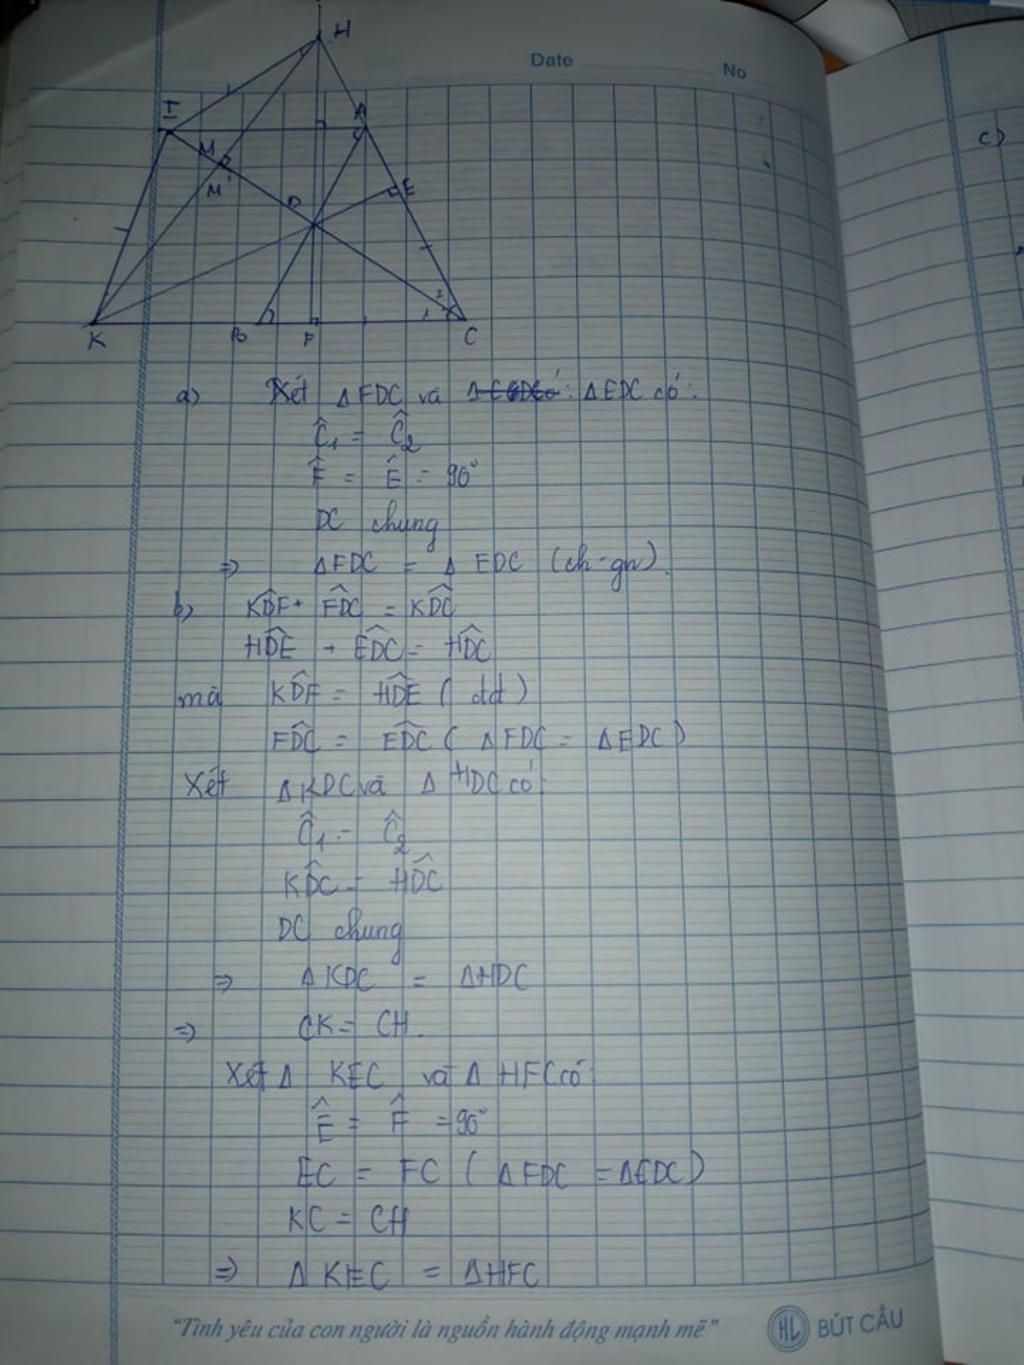 H
Date No
I
A
c)
M
E
M
D
2
1
K B F C
a) Xét Δ FDC và Δ EDC có:
Ĉ1 = Ĉ2
F̂ = Ê = 90°
DC chung
=> Δ FDC = Δ EDC (ch-gn).
b) KD̂F + FD̂C = KD̂C
HD̂E + ED̂C = HD̂C
mà KD̂F = HD̂E ( dd )
FD̂C = ED̂C ( Δ FDC = Δ EDC )
Xét Δ KDC và Δ HDC có:
Ĉ1 = Ĉ2
KD̂C = HD̂C
DC chung
=> Δ KDC = Δ HDC
=> CK = CH.
Xét Δ KEC và Δ HFC có:
Ê = F̂ = 90°
EC = FC ( Δ FDC = Δ EDC )
KC = CH
=> Δ KEC = Δ HFC
"Tình yêu của con người là nguồn hành động mạnh mẽ" HL BÚT CẦU